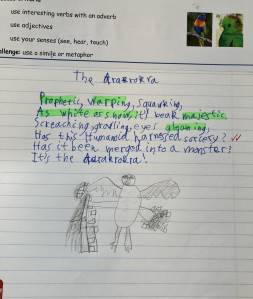 use interesting verbs with an adverb
use adjectives
use your senses (see, hear, touch)
challenge: use a simile or metaphor
The Arakrokra
Prophetic, warping, squawking,
As white as snow, it's beak majestic
Screaching, growling, eyes gleaming,
Has this humanoid harnessed sorcery?
Has it been merged into a monster?
It's the Arakrokra!